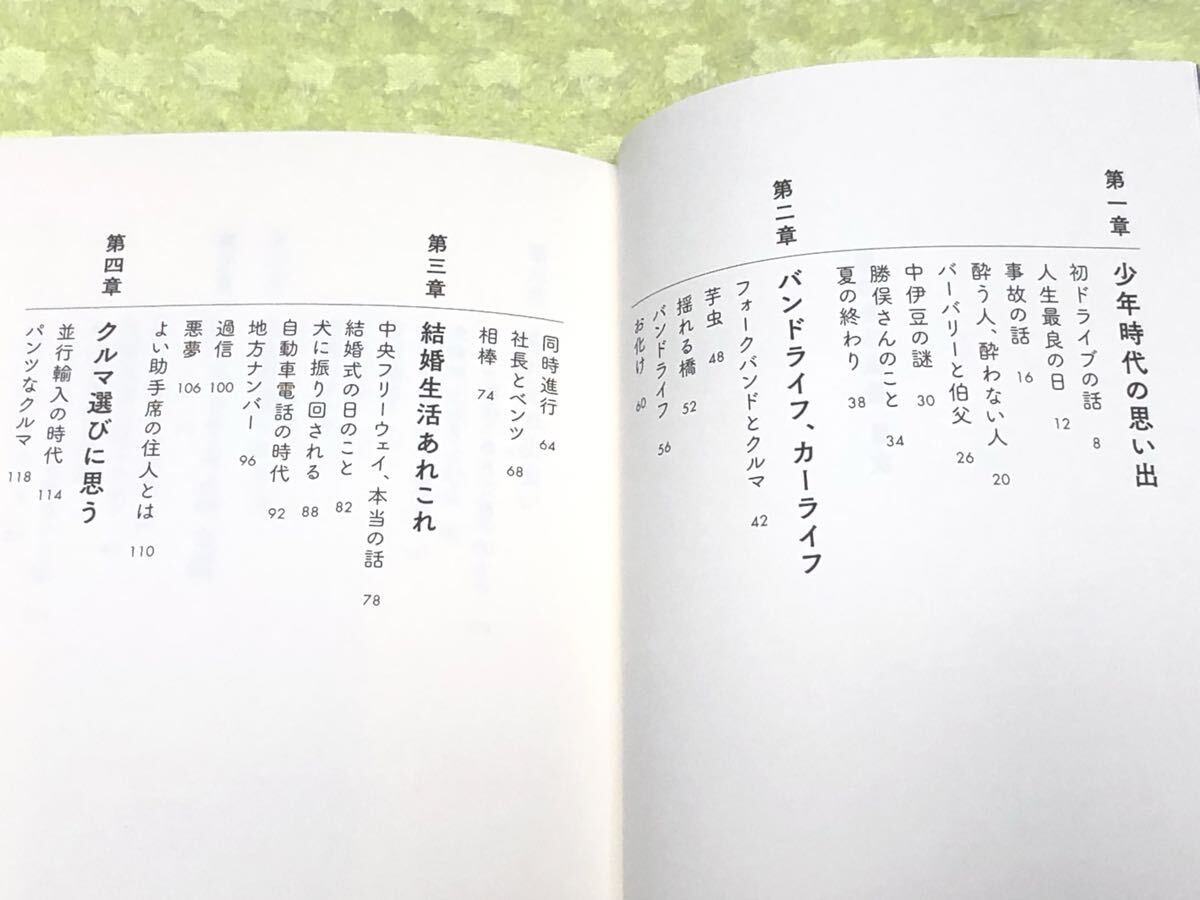 第一章
少年時代の思い出
初ドライブの話 8
人生最良の日 12
事故の話 16
酔う人、酔わない人 20
バーバリーと伯父 26
中伊豆の謎 30
勝俣さんのこと 34
夏の終わり 38
第二章
バンドライフ、カーライフ
フォークバンドとクルマ 42
芋虫 48
揺れる橋 52
バンドライフ 56
お化け 60
同時進行 64
社長とベンツ 68
相棒 74
第三章
結婚生活あれこれ
中央フリーウェイ、本当の話 78
結婚式の日のこと 82
犬に振り回される 88
自動車電話の時代 92
地方ナンバー 96
過信 100
悪夢 106
よい助手席の住人とは 110
第四章
クルマ選びに思う
並行輸入の時代 114
パンツなクルマ 118